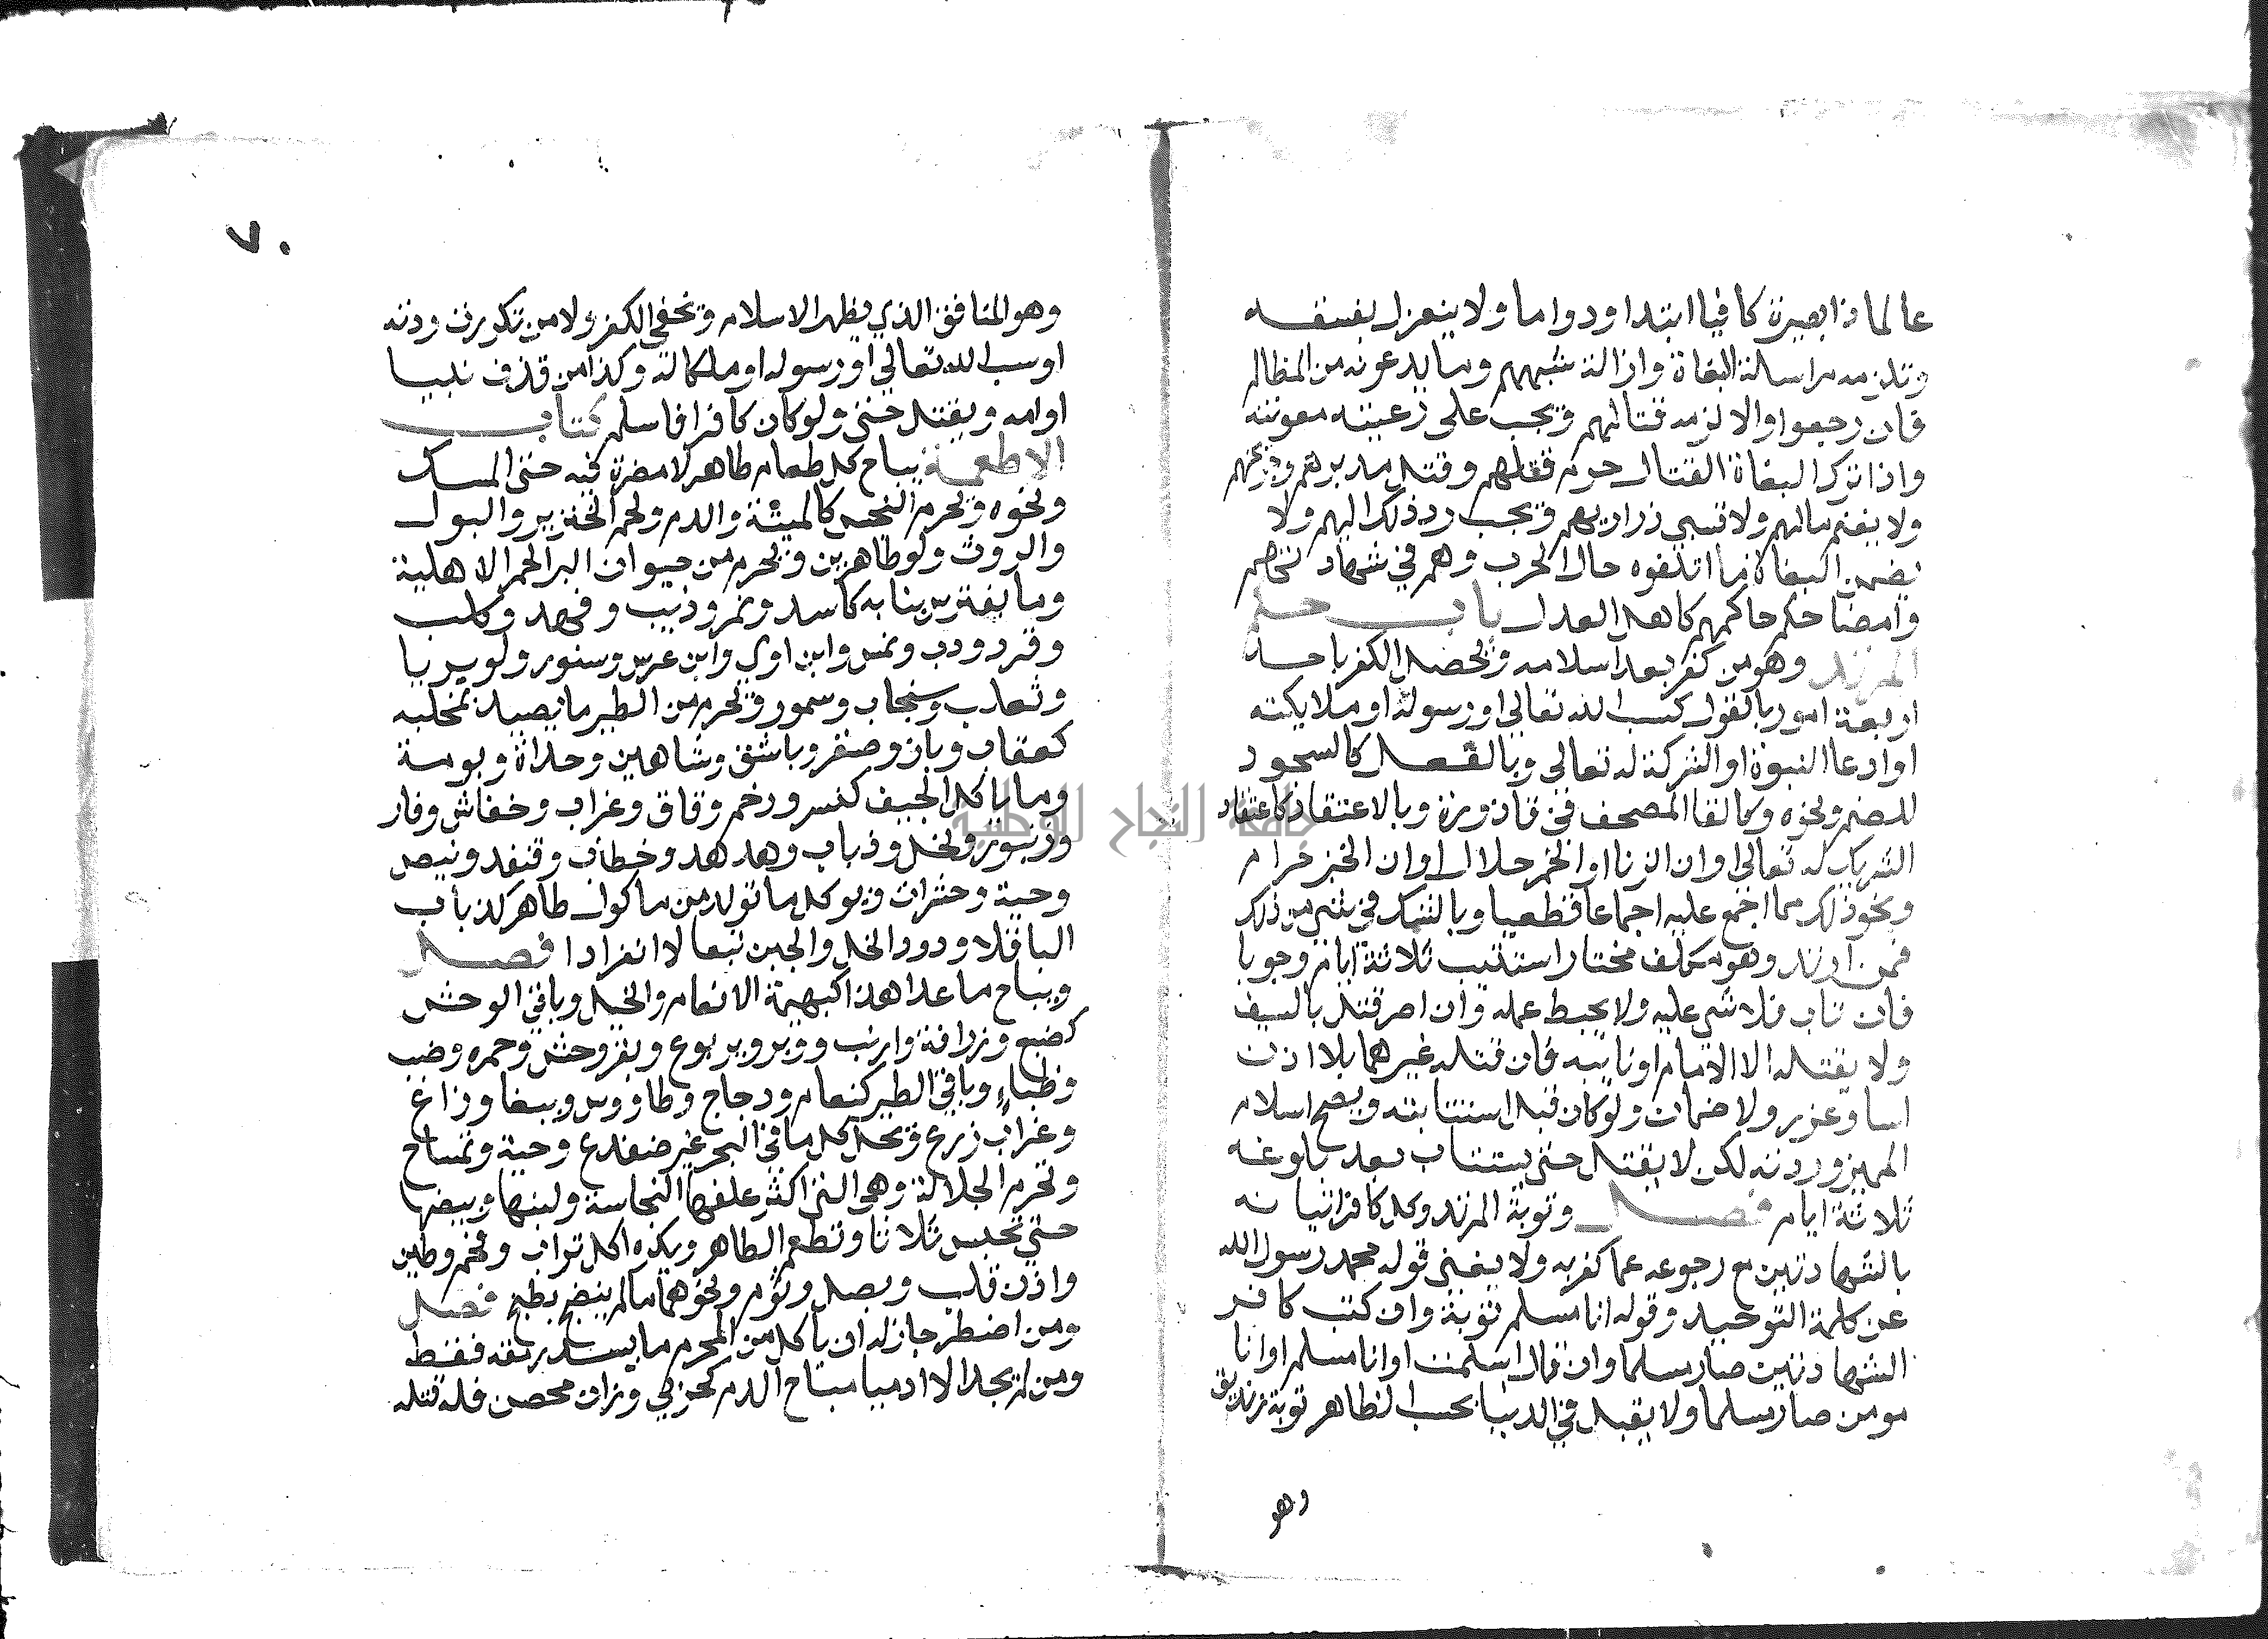 عالما ذا بصيرة كافيا ابتدا ودواما ولا ينعزل بفسقه
وتلزمه مراسلة البغاة وازالة شبههم وما يدعونه من المظالم
فان رجعوا والا لزمه قتالهم ويجب على رعيته معونته
واذا ترك البغاة القتال حرم قتلهم وقتل مدبرهم وجريحهم
ولا يغنم مالهم ولا تسبى ذراريهم ويجب رد ذلك اليهم ولا
يضمن البغاة ما اتلفوه حال الحرب وهم في شهادتهم
وامضا حكم حاكمهم كاهل العدل باب حكم
المرتد وهو من كفر بعد اسلامه ويحصل الكفر باحد
اربعة امور بالقول كسب الله تعالى او رسوله او ملايكته
او ادعا النبوة او الشركة له تعالى وبالفعل كالسجود
للصنم ونحوه وكالقا المصحف في قاذورة وبالاعتقاد كاعتقاد
الشريك له تعالى او ان الزنا او الخمر حلال او ان الخبز حرام
ونحو ذلك مما اجمع عليه اجماعا قطعيا وبالشك في شي من ذلك
فمن ارتد وهو مكلف مختار استتيب ثلاثة ايام وجوبا
فان تاب فلا شي عليه ولا يحبط عمله وان اصر قتل بالسيف
ولا يقتله الا الامام او نايبه فان قتله غيرهما بلا اذن
اسا وعزر ولا ضمان ولو كان قبل استتابته ويصح اسلام
المميز وردته لكن لا يقتل حتى يستتاب بعد بلوغه
ثلاثة ايام فصل وتوبة المرتد وكل كافر اتيانه
بالشهادتين مع رجوعه عما كفر به ولا يغني قوله محمد رسول الله
عن كلمة التوحيد وقوله انا مسلم توبة وان كتب كافر
الشهادتين صار مسلما وان قال اسلمت او انا مسلم او انا
مومن صار مسلما ولا يقبل في الدنيا بحسب الظاهر توبة زنديق
وهو
٧٠
وهو المنافق الذي يظهر الاسلام ويخفي الكفر ولا من تكررت ردته
او سب الله تعالى او رسوله او ملكا له وكذا من قذف نبيا
او امه ويقتل حتى ولو كان كافرا فاسلم كتاب
الاطعمة يباح كل طعام طاهر لا مضرة فيه حتى المسك
ونحوه ويحرم النجس كالميتة والدم ولحم الخنزير والبول
والروث ولو طاهرين ويحرم من حيوان البر الحمر الاهلية
وما يفترس بنابه كاسد ونمر وذيب وفهد وكلب
وقرد ودب ونمس وابن اوى وابن عرس وسنور ولو بريا
وثعلب وسنجاب وسمور ويحرم من الطير ما يصيد بمخلبه
كعقاب وباز وصقر وباشق وشاهين وحداة وبومة
وما ياكل الجيف كنسر ورخم وقاق وغراب وخفاش وفار
وزنبور ونحل وذباب وهدهد وخطاف وقنفد ونيص
وحية وحشرات ويوكل ما تولد من ماكول طاهر كذباب
الباقلا ودود الخل والجبن تبعا لا انفرادا فصل
ويباح ما عدا هذا كبهيمة الانعام والخيل وباقي الوحش
كضبع وزرافة وارنب ووبر ويربوع وبقر وحش وحمره وضب
وظباء وباقي الطير كنعام ودجاج وطاووس وببغا وزاغ
وغراب زرع ويحل كل ما في البحر غير ضفدع وحية وتمساح
وتحرم الجلالة وهي التي اكثر علفها النجاسة ولبنها وبيضها
حتى تحبس ثلاثا وتطعم الطاهر ويكره اكل تراب وفحم وطين
واذن قلب وبصل وثوم ونحوهما ما لم ينضج بطبخ فصل
ومن اضطر جاز له ان ياكل من المحرم ما يسد رمقه فقط
ومن لم يجد الا ادميا مباح الدم كحربي وزان محصن فله قتله
جامعة النجاح الوطنية